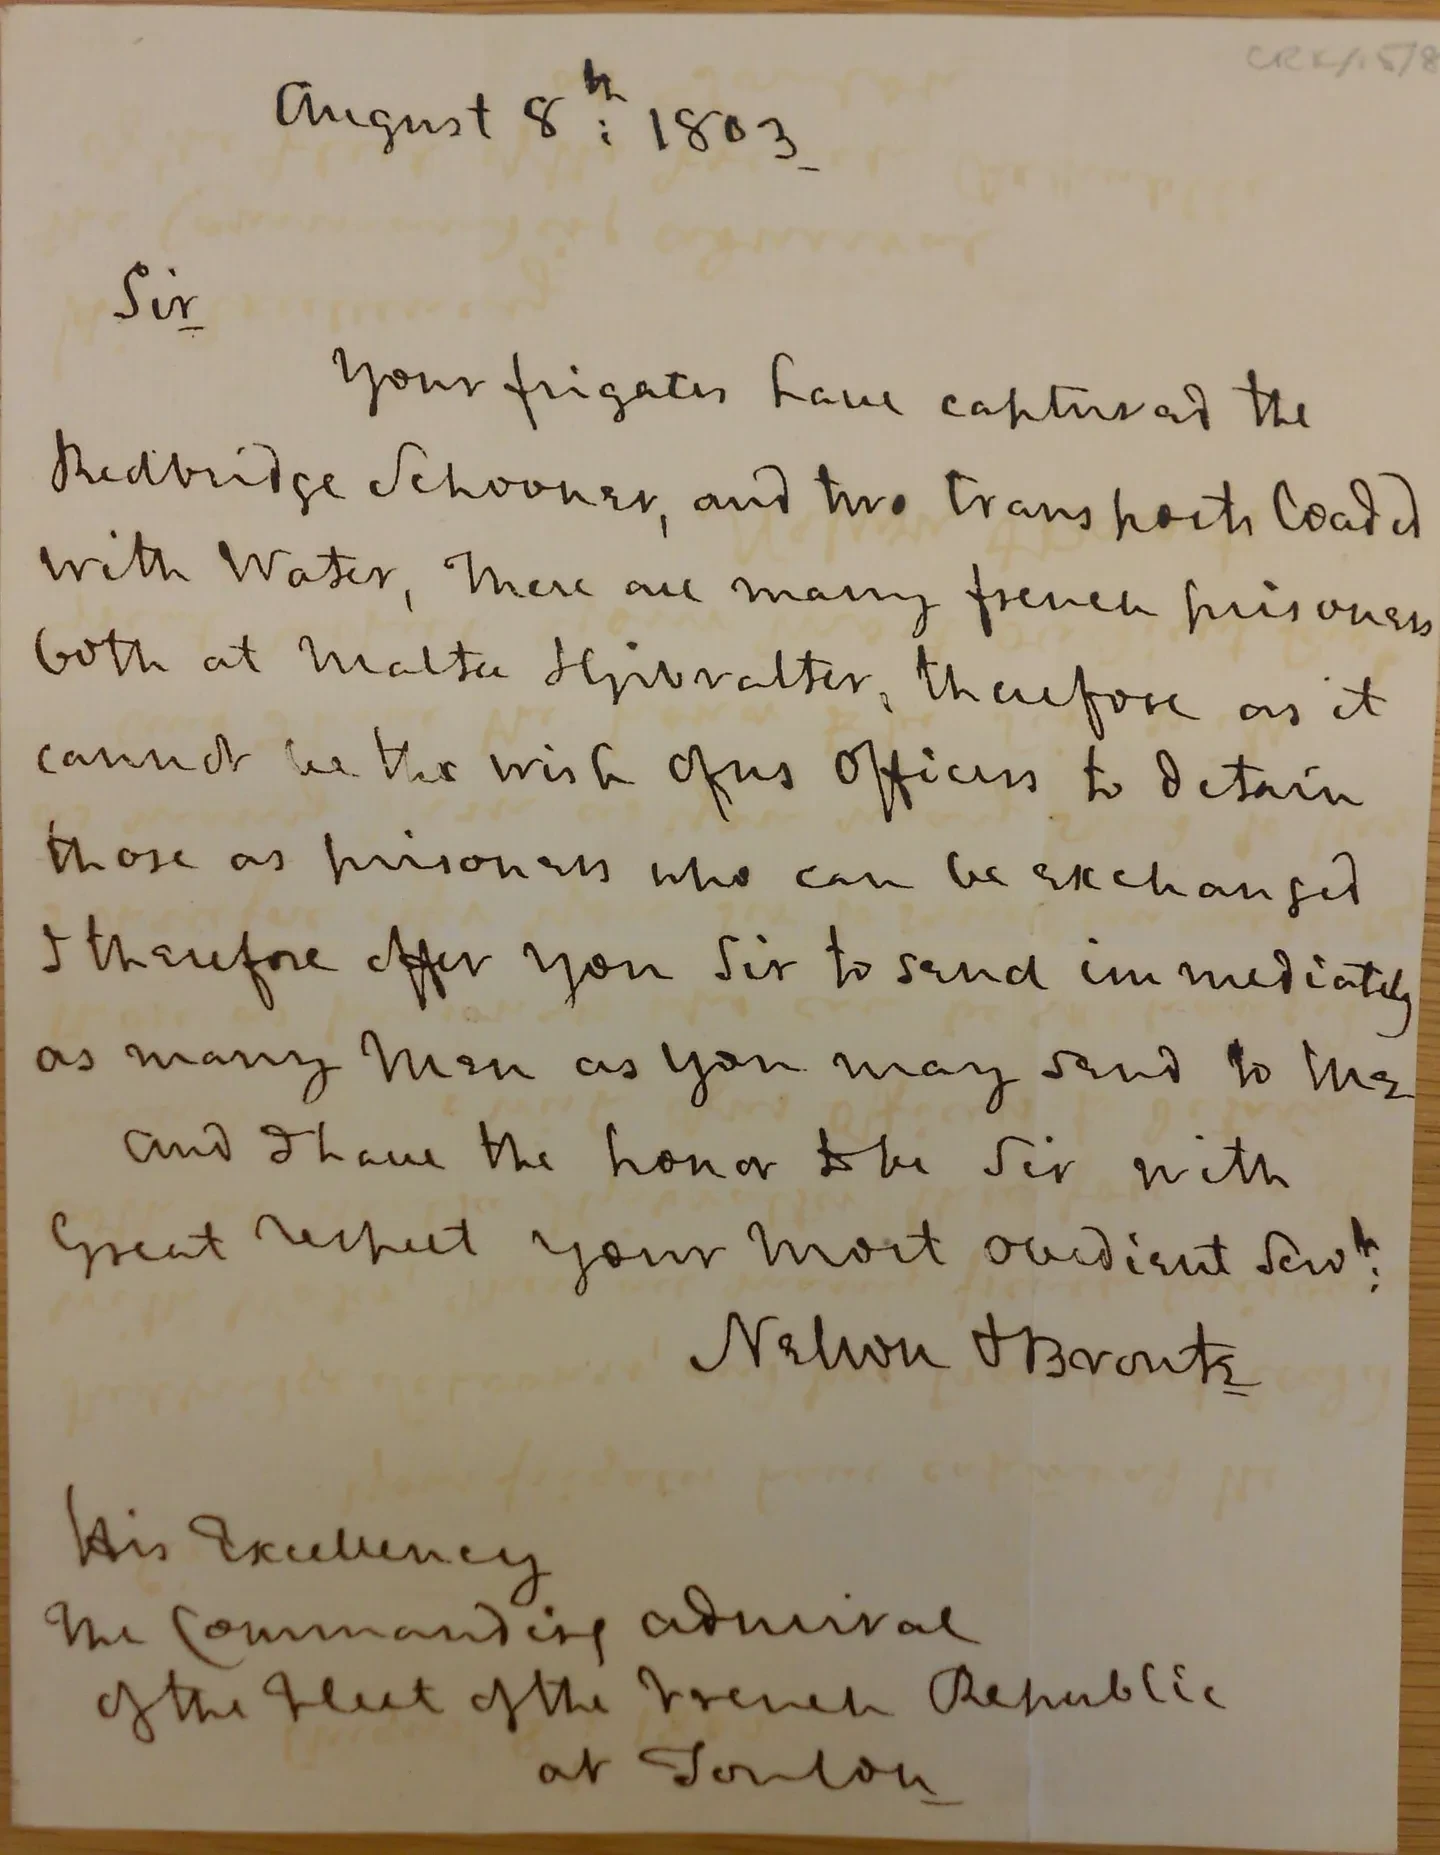 CRK/15/8
August 8th: 1803
Sir
Your frigates have captured the
Redbridge Schooner, and two transports Loaded
with Water, There are many french prisoners
both at Malta & Gibralter, therefore as it
cannot be the wish of us Officers to detain
those as prisoners who can be exchanged
I therefore offer you Sir to send immediately
as many Men as you may send to me
and I have the honor to be Sir with
Great respect your Most obedient Servt:
Nelson & Bronte
His Excellency
The Commanding admiral
of the Fleet of the French Republic
at Toulon